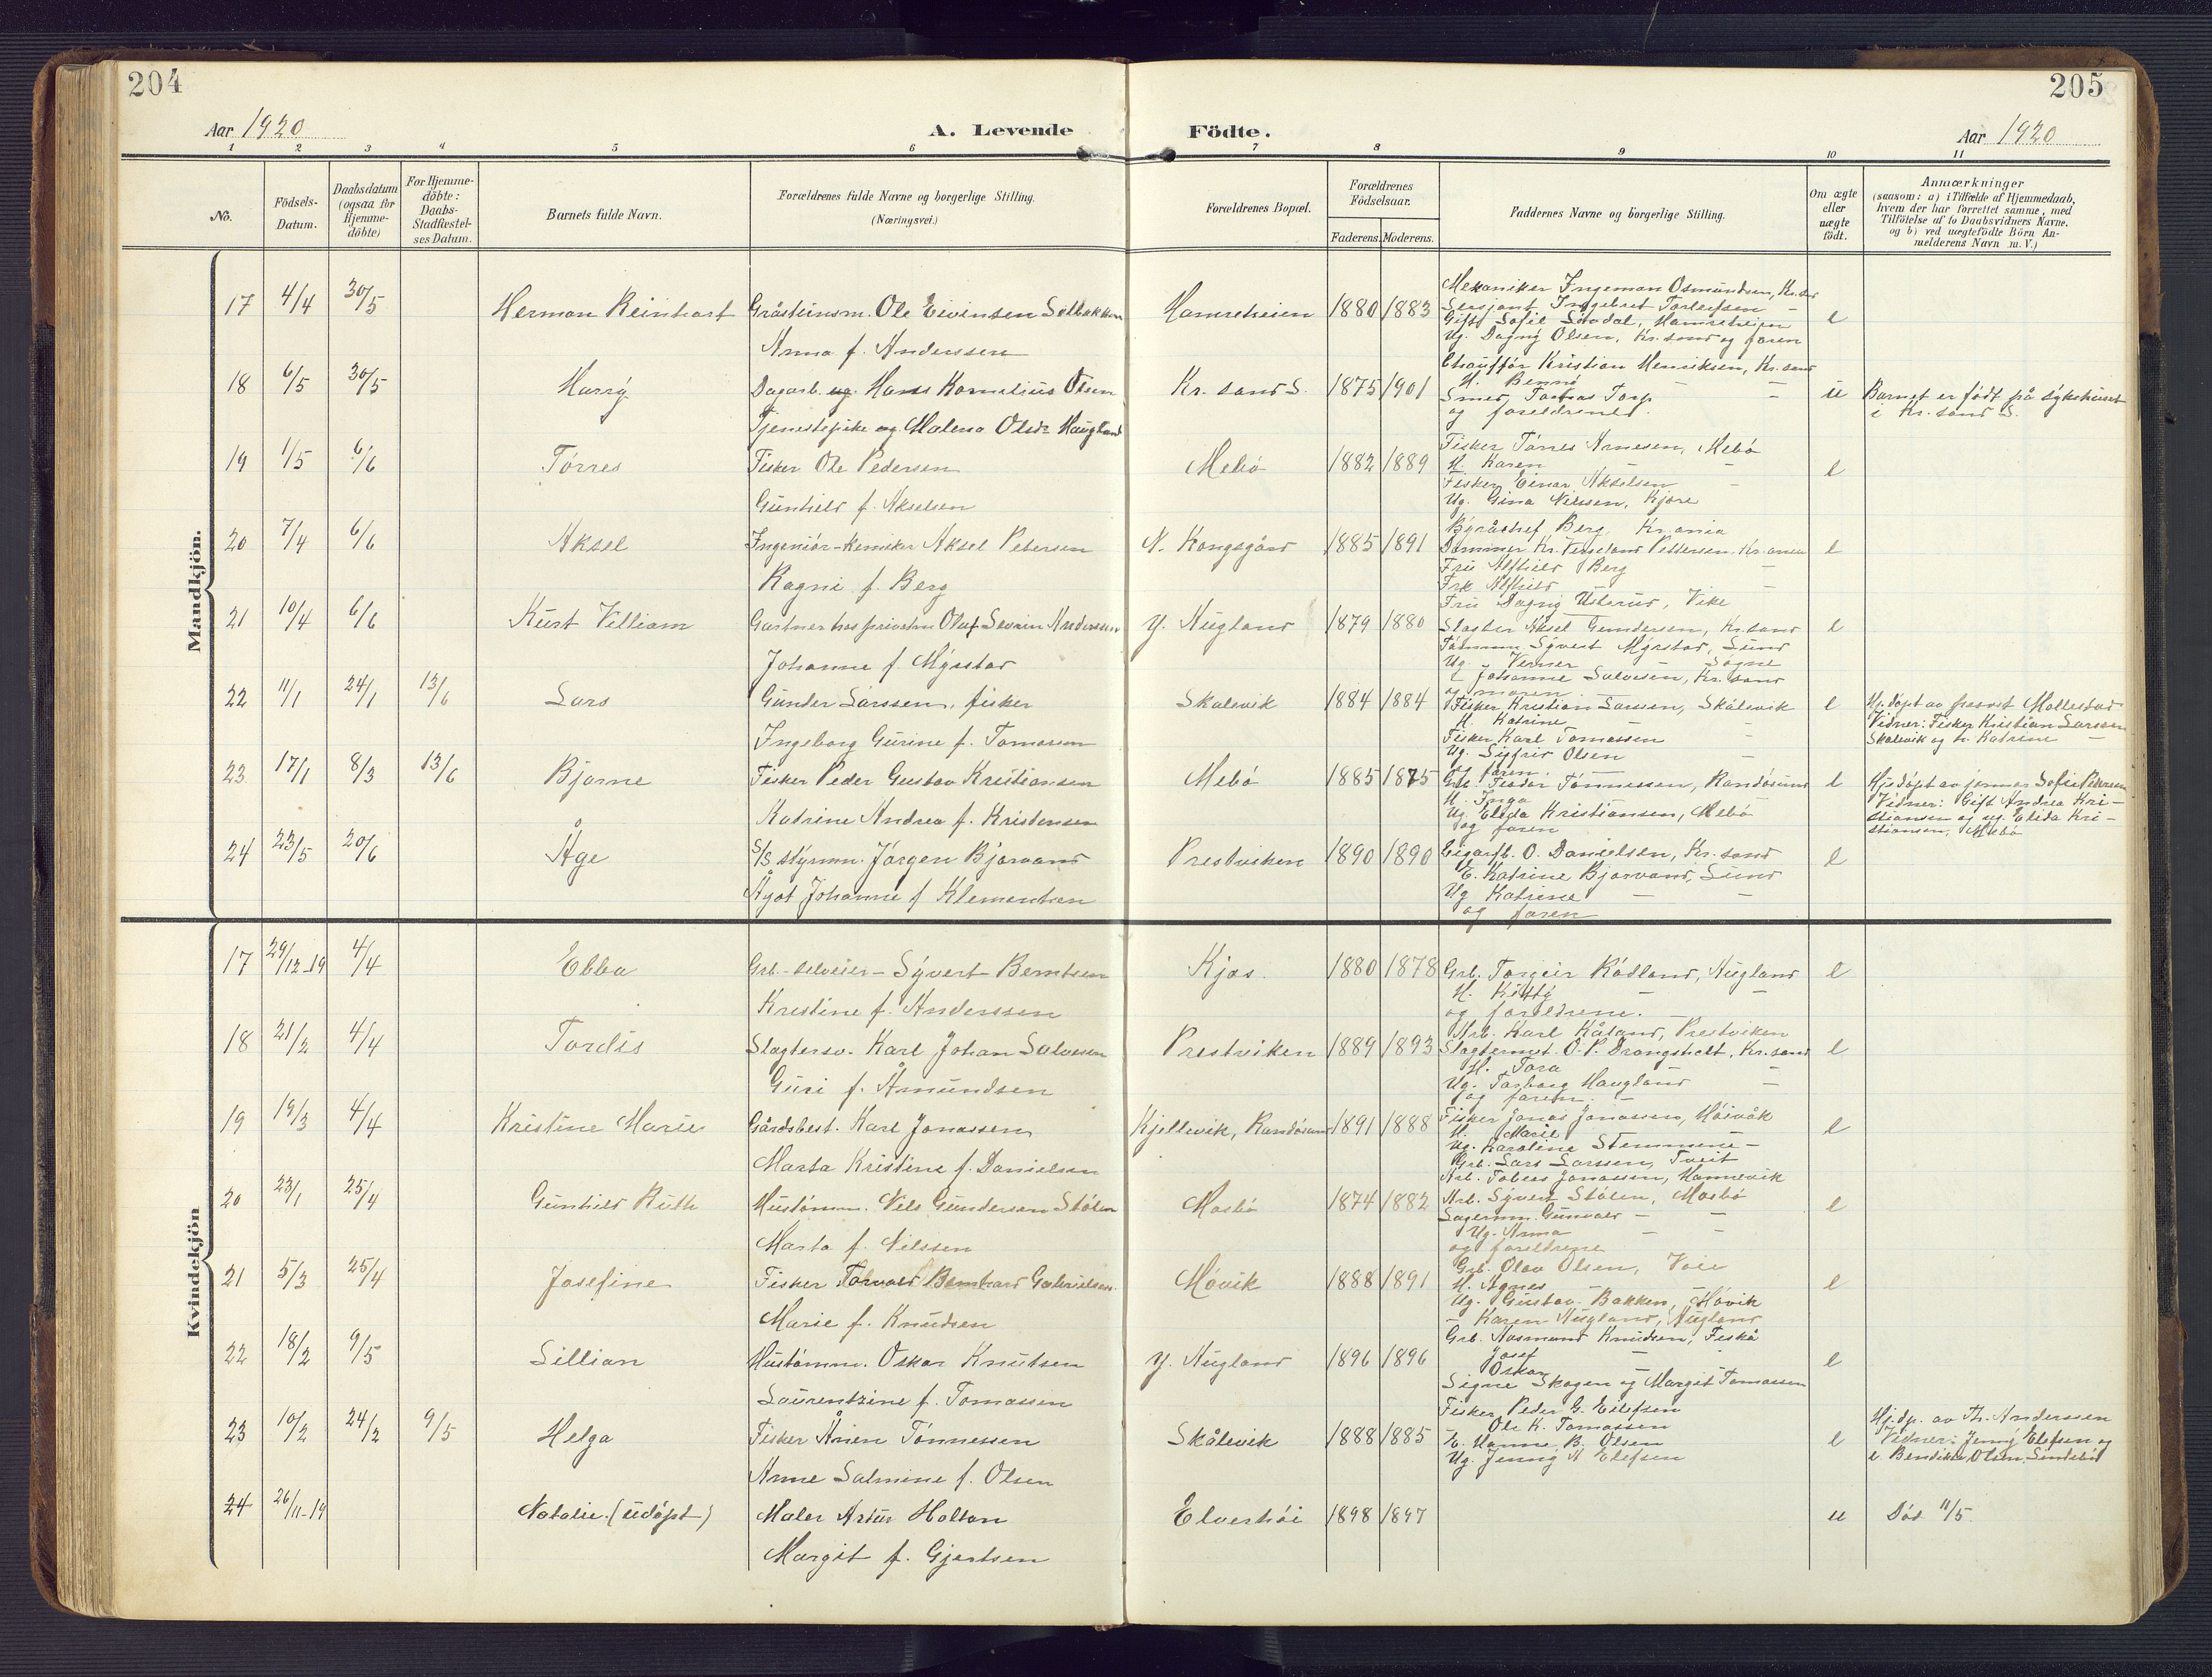 204
205
Aar 1920
A. Levende Födte.
Aar 1920
1 2 3 4 5 6 7 8 9 10 11
No.
Födsels-Datum.
Daabsdatum (ogsaa for Hjemme-döbte)
For Hjemme-döbte: Daabs-Stadfæstel-ses Datum.
Barnets fulde Navn.
Forældrenes fulde Navne og borgerlige Stilling.
(Næringsvei.)
Forældrenes Bopæl.
Forældrenes Födselsaar.
Faderens. Moderens.
Faddernes Navne og borgerlige Stilling.
Om ægte eller uægte födt.
Anmærkninger
(saasom: a) i Tilfælde af Hjemmedaab,
hvem der har forrettet samme, med
Tilföielse af to Daabsvidners Navne.
og b) ved uægtefödte Börn An-
melderens Navn m. V.)
Mandkjön.
17 4/4 30/5 Herman Reinhart Gråsteinsm. Ole Eivinsen
Anna f. Anderssen
Hamreheien 1880 1883 Mekaniker Ingeman Osmundsen, Kr.sa
Sersjant Ingebret Torleifsen -
Gift Sofie Hamreheien
Ug. Dagny Olsen, Kr.sand og faren
e
18 6/5 30/5 Harry Dagarb. ug. Hans Kornelius Olsen
Tjenestepike ug. Malena Olsdr Haugland
Kr. sand S. 1875 1901 Chauffør Kristian Henriksen, Kr. sand
Smed Torp -
og foreldrene.
u Barnet er født på sykehuset
i Kr. sand S.
19 1/5 6/6 Tørres Fisker Ole Pedersen
Gunhild f. Akselsen
Mebø 1882 1889 Fisker Tørres Arnesen, Mebø
H. Karen -
Fisker Einar Akselsen -
Ug. Gina Nilssen, Kjøre
e
20 7/4 6/6 Aksel Ingeniør-kemiker Aksel Petersen
Ragni f. Berg
N. Kongsgård 1885 1891 Byråchef Berg Kr.ania
Kr. Vesseland Pettersen. Kr.ania
Fru Alfhild Berg -
Frk Alfhild -
e
21 10/4 6/6 Kurt Villiam Gartner hos privatm Oluf Severin Andersen
Johanne f. Myrstar
Y. Augland 1879 1880 Fru Dagny Usterud, Vike
Slagter Aksel Gundersen, Kr. sand
Tømmerm Syvert Myrstad, Lund
Ug. Verner - Søgne
Johanne Salvesen, Kr. sand
og moren
e
22 11/1 24/1 13/6 Lars Gunder Larssen, fisker
Ingeborg Gurine f. Tomassen
Skålevik 1884 1884 Fisker Kristian Larssen, Skålevik
H. Katrine -
Fisker Karl Tomassen -
Ug. Sigfrid Olsen
og faren
e Hj. døpt av prost Mollestad
Vidner: Fisker Kristian Larssen
Skålevik og h. Katrine -
23 17/1 8/3 13/6 Bjarne Fisker Peder Gustav Kristiansen
Katrine Andrea f. Kristensen
Mebø 1885 1875 Grb. Fredor Tønnessen, Randøsund
H. Inga -
Ug. Elida Kristiansen, Mebø
og faren
e Hjdøpt av jormor Sofie
Vidner: Gift Andrea Kri-
stiansen og ug. Elida Kri-
stiansen, Mebø
24 23/5 20/6 Åge S/S styrmn. Jørgen Bjorvand
Ågot Johanne f Klementsen
Prestviken 1890 1890 O. Danielsen, Kr. sand
E. Katrine Bjorvand, Lund
Ug Katrine - -
og faren
e
Kvindekjön
17 29/12-19 4/4 Ebba Grb.-selveier- Syvert Berntsen
Kristine f. Anderssen
Kjos. 1880 1878 Grb. Torgeir Rådland, Augland
H. Kitty - -
og foreldrene.
e
18 21/2 4/4 Tordis Slagtersv. Karl Johan Salvesen
Guri f. Åmundsen
Prestviken 1889 1893 Arb. Karl Kåland, Prestviken
Slagtermst. O. P. Drangsholt, Kr. sand
H. Tora -
Ug. Torborg Haugland -
og faren. -
e
19 19/3 4/4 Kristine Marie Gårdsbest. Karl Jonassen
Marta Kristine f. Danielsen
Kjellevik, Randøsund 1891 1888 Fisker Jonas Jonassen, Høivåk
H. Marie
Ug. Karoline Stemmene -
Grb. Lars Larssen, Tveit
Arb. Tobias Jonassen, Hannevik
e
20 23/1 25/4 Gunhild Ruth Hustømm. Nils Gundersen Stølen
Marta f. Nilssen
Mosbø 1874 1882 Arb. Syvert Stølen, Mosbø
Lagermn. Gunvald - -
Ug. Anna - -
og foreldrene
e
21 5/3 25/4 Josefine Fisker Torvald Bernhard Gabrielsen
Marie f. Knudsen
Møvik 1888 1891 Grb. Olav Olsen, Voie
H. Agnes -
Ug. Gustav Bakken, Møvik
- Karen Augland, Augland
e
22 18/2 9/5 Lillian Hustømm. Oskar Knutsen
Laurentzine f. Tomassen
Y. Augland 1896 1896 Grb. Aasmund Knudsen, Fiskå
Josef -
Oskar -
Signe Skogen og Margit Tomassen
e
23 10/2 24/2 9/5 Helga Fisker Ånen Tønnessen
Anne Salmine f. Olsen
Skålevik 1888 1885 Fisker Peder G. Eilefsen
- Ole K. Tomassen
E. Hanne B. Olsen
Ug. Jenny A Elefsen
e Hj.dp. av Th. Anderssen
Vidner: Jenny Elefsen og
e. Bendikte Olsen,
24 26/11-19 Natalie. (udøpt) Maler Artur Holtan
Margit f. Gjertsen
Elvershøi 1898 1897 u Død 11/5